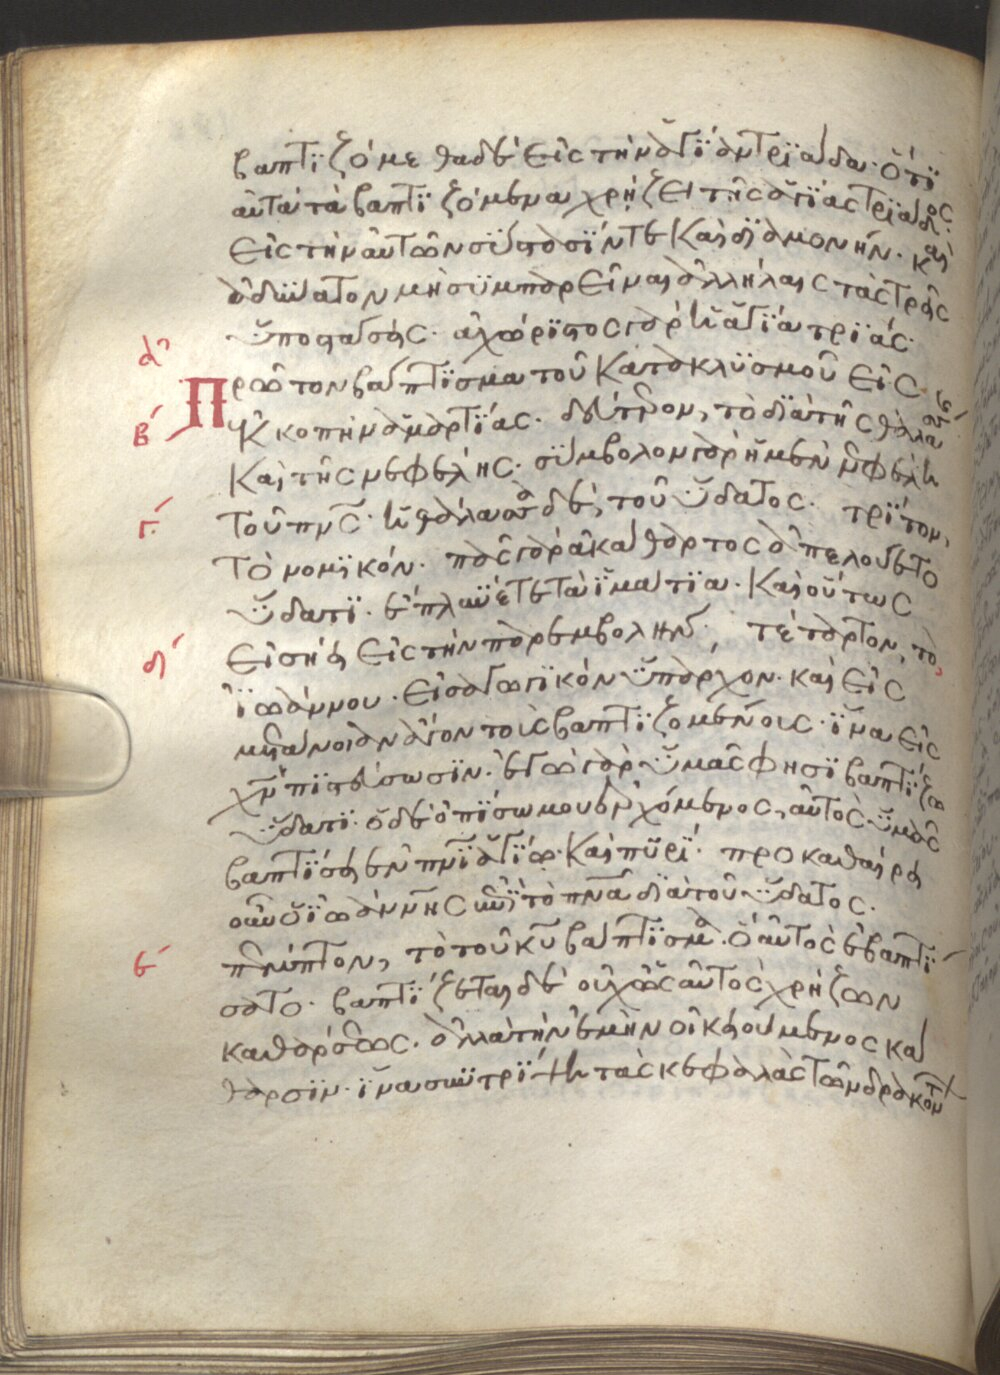 βαπτϊζόμεθα δὲ εἰς τὴν ἁγΐαν τρϊάδα· ὅτϊ
αὐτὰ τὰ βαπτϊζόμενα χρήζει τῆς ἁγΐας τρϊάδος·
εἰς τὴν αὐτῶν σΰστασΐν τε καὶ δϊαμονήν· καὶ
ἀδΰνατον μὴ συμπαρεῖναι ἀλλήλαις τὰς τρεῖς
ὑποστάσεις· ἀχώρϊστος γὰρ ἡ ἁγΐα τρϊάς·
α
Πρῶτον βάπτϊσμα τοῦ κατακλϋσμοῦ εἰς
β
ἐκκοπὴν ἁμαρτΐας· δεύτερον, τὸ δϊὰ τῆς θαλάσ
καὶ τῆς νεφέλης· σΰμβολον γὰρ ἡ μὲν νεφέλη
γ
τοῦ πνς· ἡ θάλασσα δὲ, τοῦ ὕδατος· τρΐτον,
τὸ νομϊκόν· πᾶς γὰρ ἀκάθαρτος ἀπελούετο
ὕδατϊ· ἔπλυνέ τε τὰ ἱμάτϊα· καὶ οὕτως
δ
εἰσῄει εἰς τὴν παρεμβολήν· τέταρτον, τὸ
ϊωάννου· εἰσαγωγϊκὸν ὑπάρχον· καὶ εἰς
μετάνοιαν ἄγον τοὺς βαπτϊζομένους· ἵνα εἰς
χν πϊστεύσωσϊν· ἐγὼ γὰρ ὑμᾶς φησϊ βαπτΐζω
ὕδατϊ· ὁ δὲ ὀπΐσω μου ἐρχόμενος, αὐτὸς ὑμᾶς
βαπτΐσει ἐν πνϊ ἁγΐω· καὶ πυρΐ· προκαθαίρει
οὖν ὁ ϊωάννης τὸ πνα δϊὰ τοῦ ὕδατος·
ε
πέμπτον, τὸ τοῦ κυ βάπτϊσμα· ὃ αὐτὸς ἐβαπτΐ
σατο· βαπτΐζεται δὲ οὐχ ὡς αὐτὸς χρήζων
καθάρσεως· ἀλλὰ τὴν ἐμὴν οἰκειούμενος κά
θαρσϊν· ἵνα συντρΐψη τὰς κεφαλὰς τῶν δρακόντων